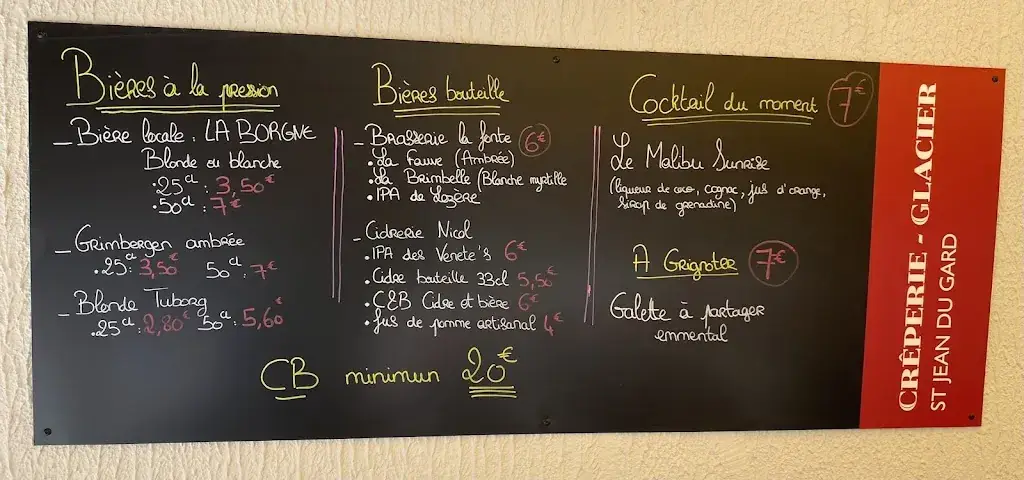 Bières à la pression
_ Bière locale : LA BORGNE
Blonde ou blanche
• 25cl : 3,50€
• 50cl : 7€
_ Grimbergen ambrée
• 25cl : 3,50€ 50cl : 7€
_ Blonde Tuborg
• 25cl : 2,80€ 50cl : 5,60€
Bières bouteille
_ Brasserie la jonte 6€
• La Fauve (Ambrée)
• La Brimbelle (Blanche myrtille
• IPA de Lozère
_ Cidrerie Nicol
• IPA des Venete's 6€
• Cidre bouteille 33cl 5,50€
• C&B Cidre et bière 6€
• Jus de pomme artisanal 4€
Cocktail du moment 7€
Le Malibu Sunrise
(liqueur de coco, cognac, jus d'orange,
sirop de grenadine)
A Grignoter 7€
Galette à partager
emmental
CB minimun 20€
CRÊPERIE - GLACIER
ST JEAN DU GARD